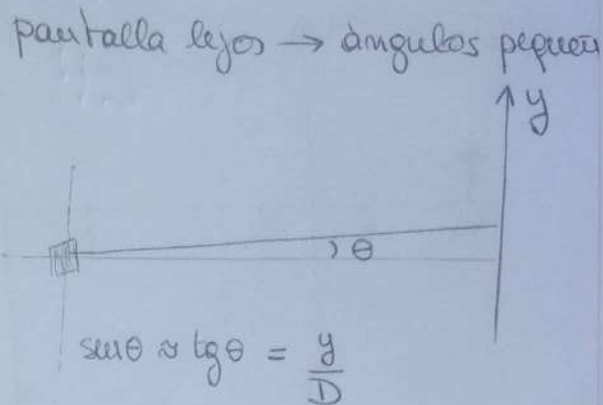 pantalla lejos → ángulos pequeñ
y
θ
senθ ≈ tgθ = y/D